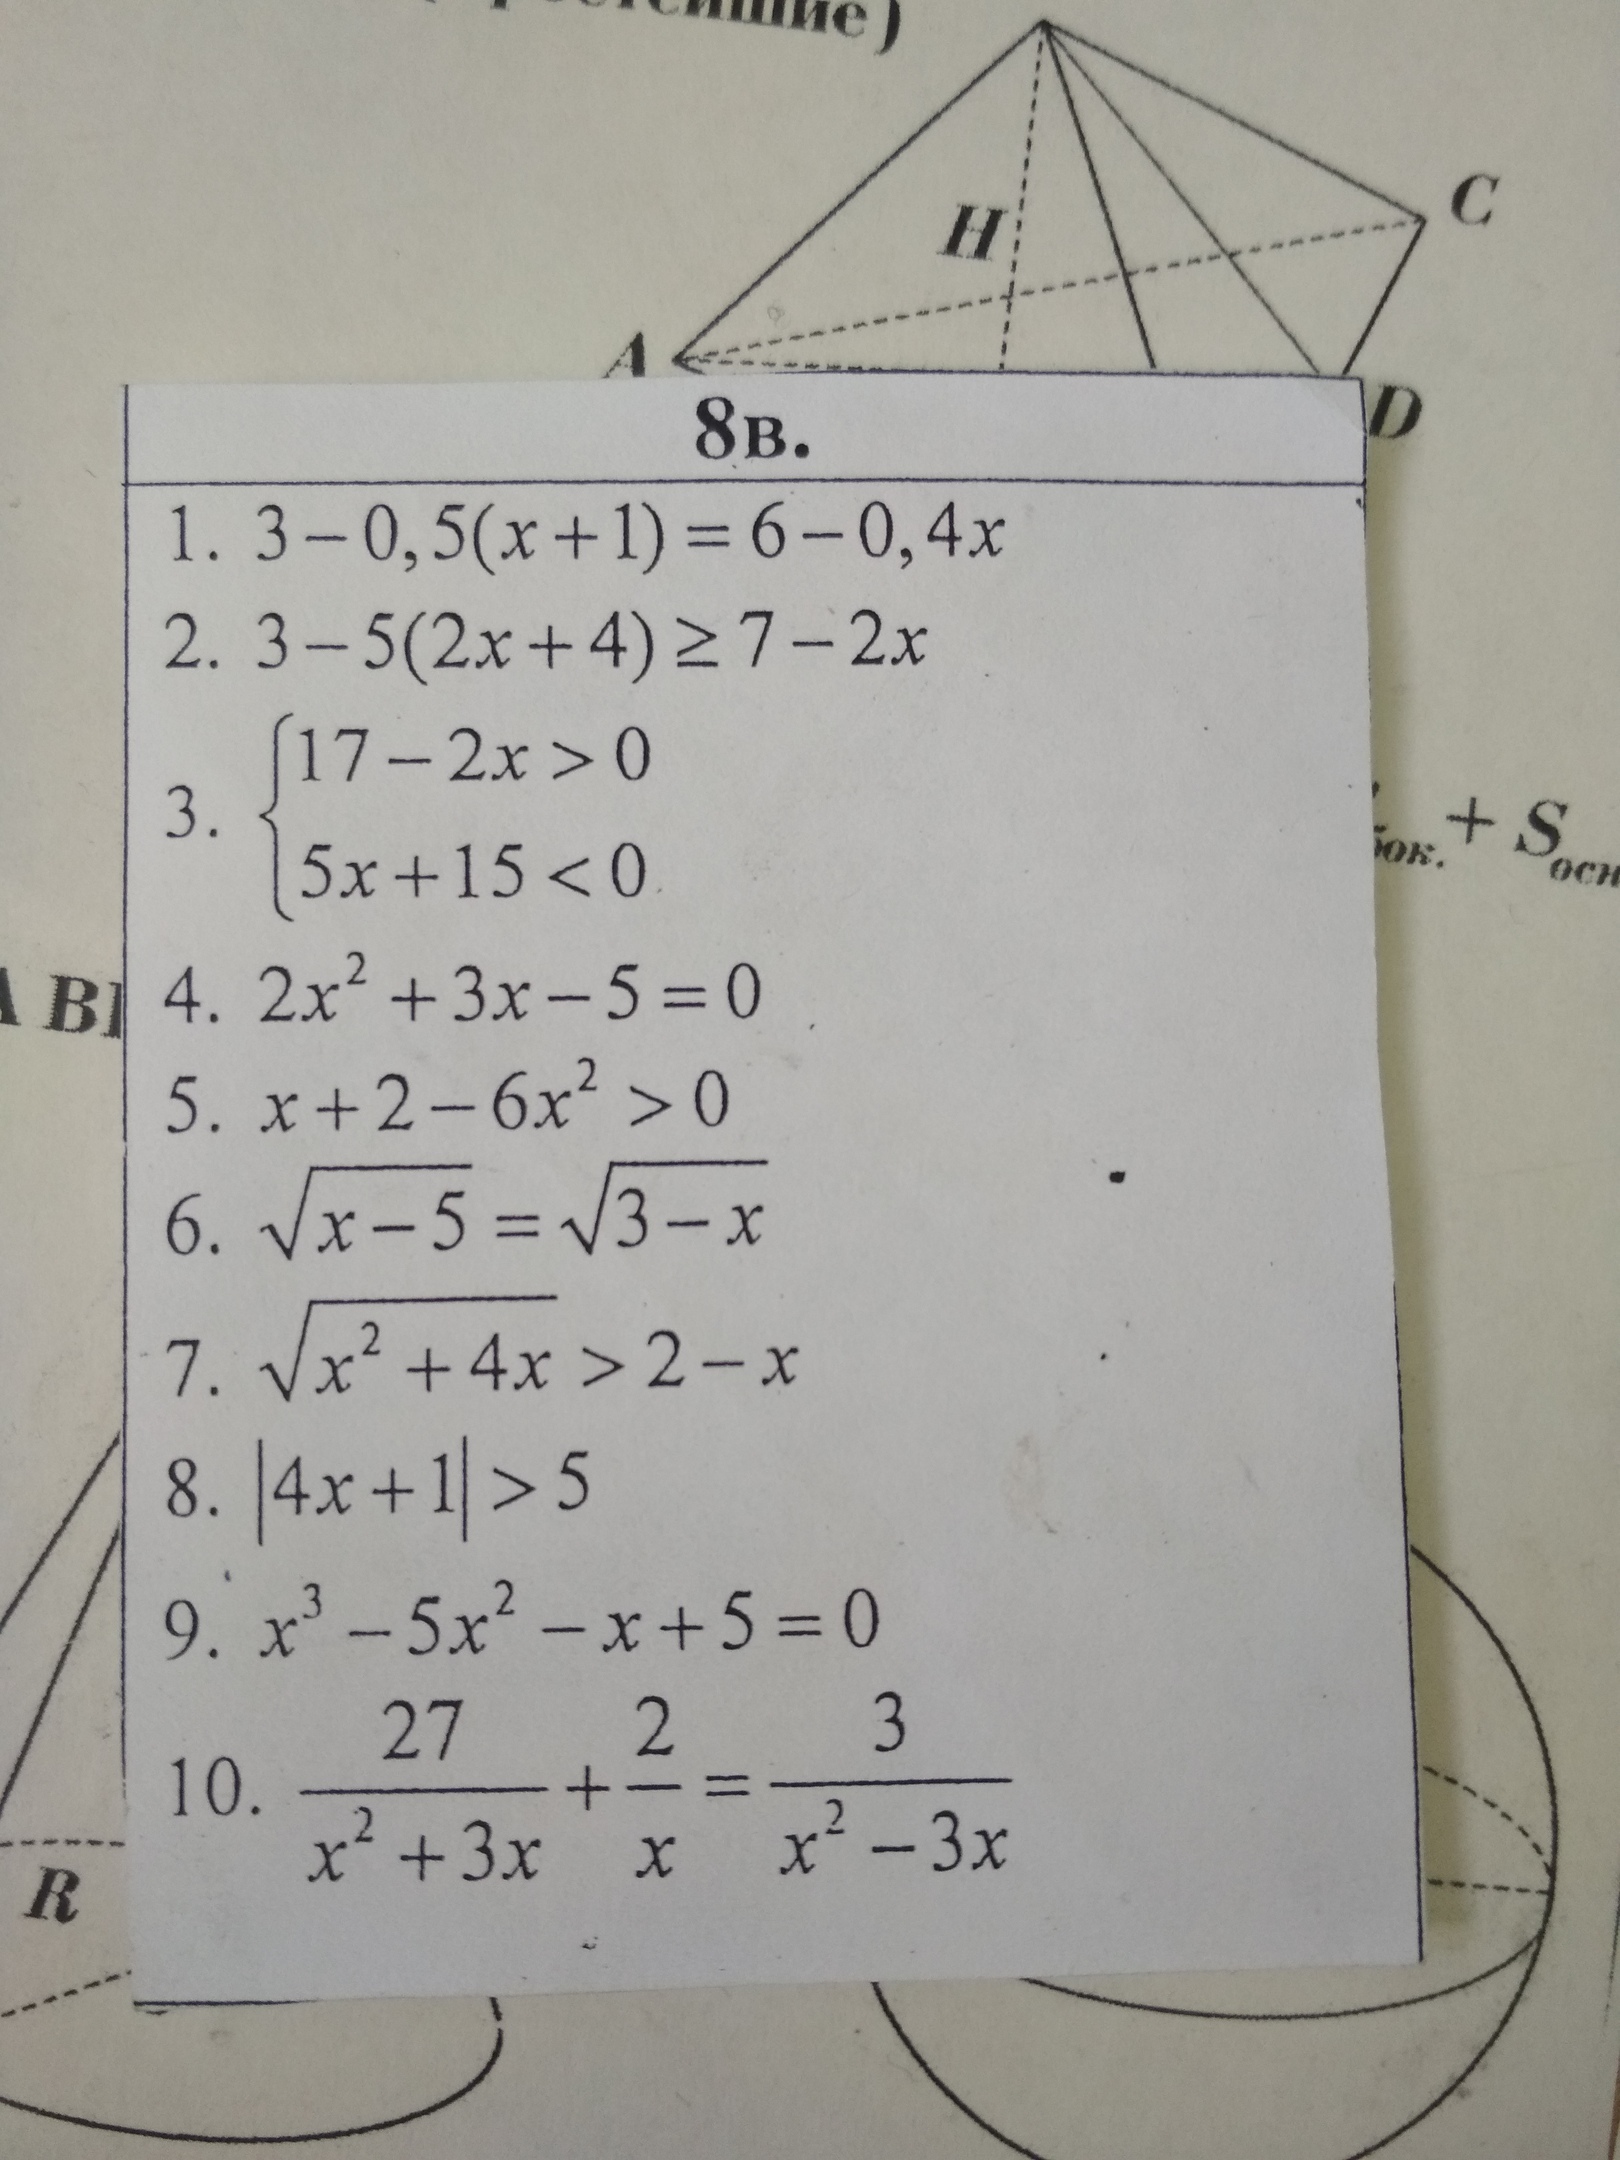 H
C
A
D
8в.
1. 3 − 0,5(x + 1) = 6 − 0,4x
2. 3 − 5(2x + 4) ≥ 7 − 2x
3. { 17 − 2x > 0
5x + 15 < 0
+ S
4. 2x² + 3x − 5 = 0
5. x + 2 − 6x² > 0
6. √(x − 5) = √(3 − x)
7. √(x² + 4x) > 2 − x
8. |4x + 1| > 5
9. x³ − 5x² − x + 5 = 0
10. 27/(x² + 3x) + 2/x = 3/(x² − 3x)
R